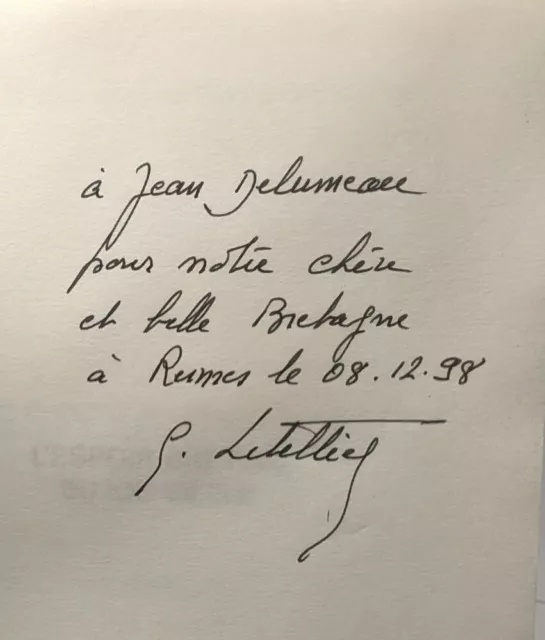 à Jean Delumeau
pour notre chère
et belle Bretagne
à Rennes le 08.12.98
G. Letellier